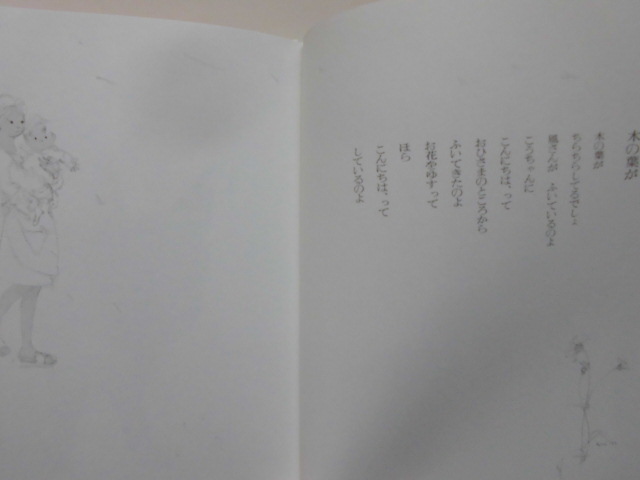 木の葉が
木の葉が
ちらちらしてるでしょ
風さんが ふいているのよ
こうちゃんに
こんにちは、って
おひさまのところから
ふいてきたのよ
お花をゆすって
ほら
こんにちは、って
しているのよ